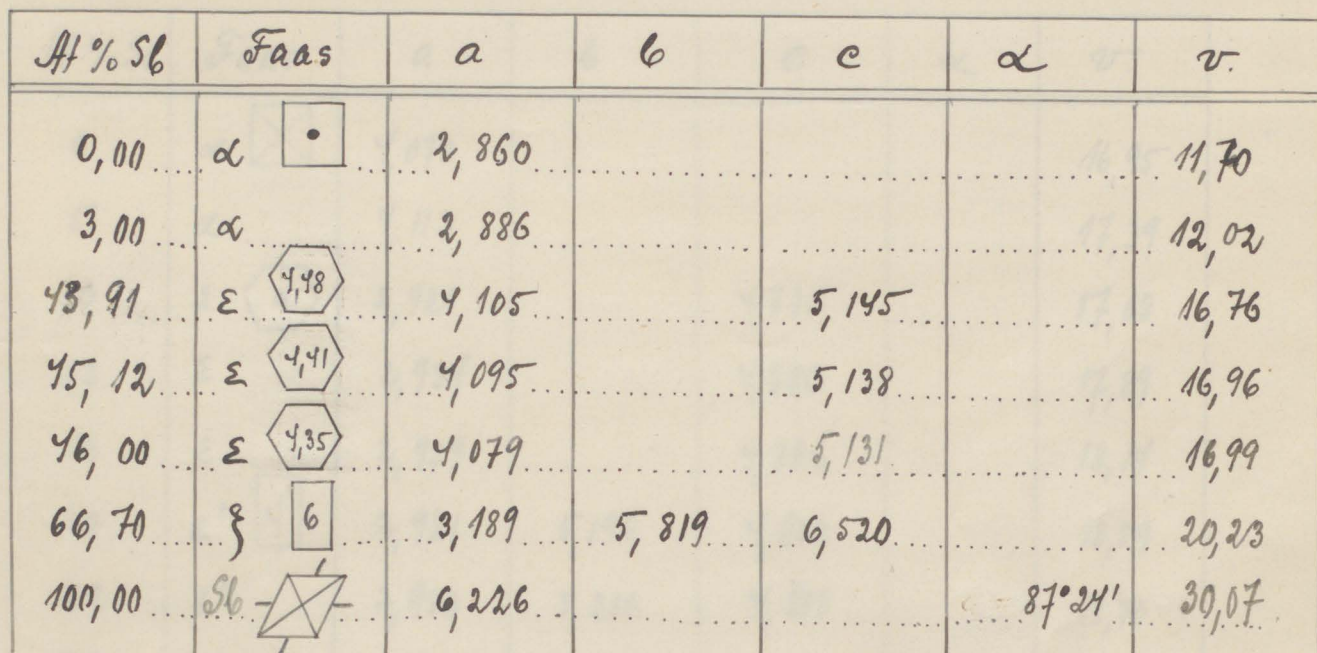 At % Sb Faas a b c α v.
0,00 α 2,860 11,70
3,00 α 2,886 12,02
43,91 ε 4,48 4,105 5,145 16,76
45,12 ε 4,41 4,095 5,138 16,96
46,00 ε 4,35 4,079 5,131 16,99
66,70 ζ 6 3,189 5,819 6,520 20,23
100,00 Sb 6,226 87°24' 30,07